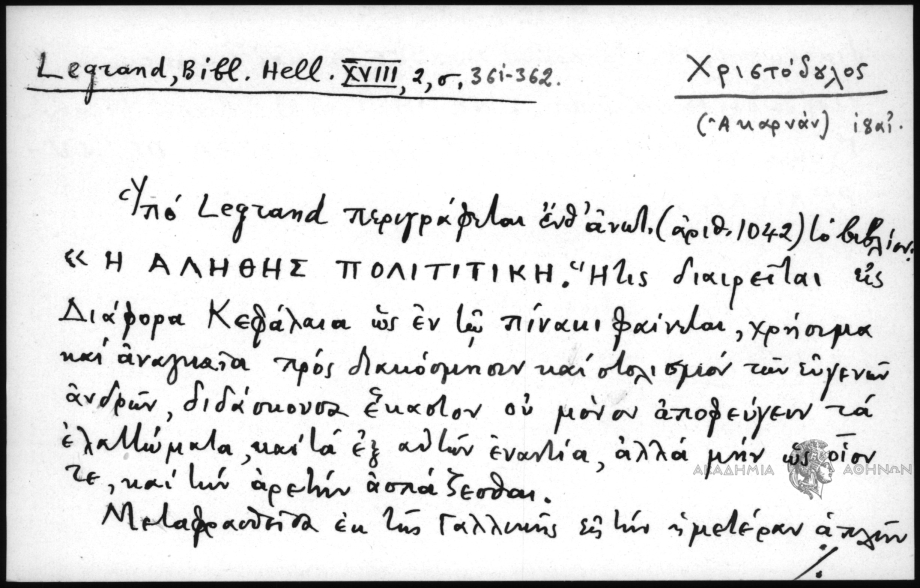 Legrand, Bibl. Hell. XVIII, 2, σ, 361-362.
Χριστόδουλος
(Ἀκαρνάν) ιβαʹ.
Ὑπό Legrand περιγράφεται ἔνθ' ἀνωτ. (ἀριθ. 1042) τό βιβλίον:
« Η ΑΛΗΘΗΣ ΠΟΛΙΤΙΤΙΚΗ. Ἥτις διαιρεῖται εἰς
Διάφορα Κεφάλαια ὡς ἐν τῷ πίνακι φαίνεται, χρήσιμα
καί ἀναγκαῖα πρός διακόσμησιν καί στολισμόν τῶν εὐγενῶν
ἀνδρῶν, διδάσκουσα ἕκαστον οὐ μόνον ἀποφεύγειν τά
ἐλαττώματα, καί τά ἐξ αὐτῶν ἐναντία, ἀλλά μήν ὡς οἷον
τε, καί τήν ἀρετήν ἀσπάζεσθαι.
Μεταφρασθεῖσα ἐκ τῆς Γαλλικῆς εἰς τήν ἡμετέραν ἁπλῆν
./.
ΑΚΑΔΗΜΙΑ ΑΘΗΝΩΝ